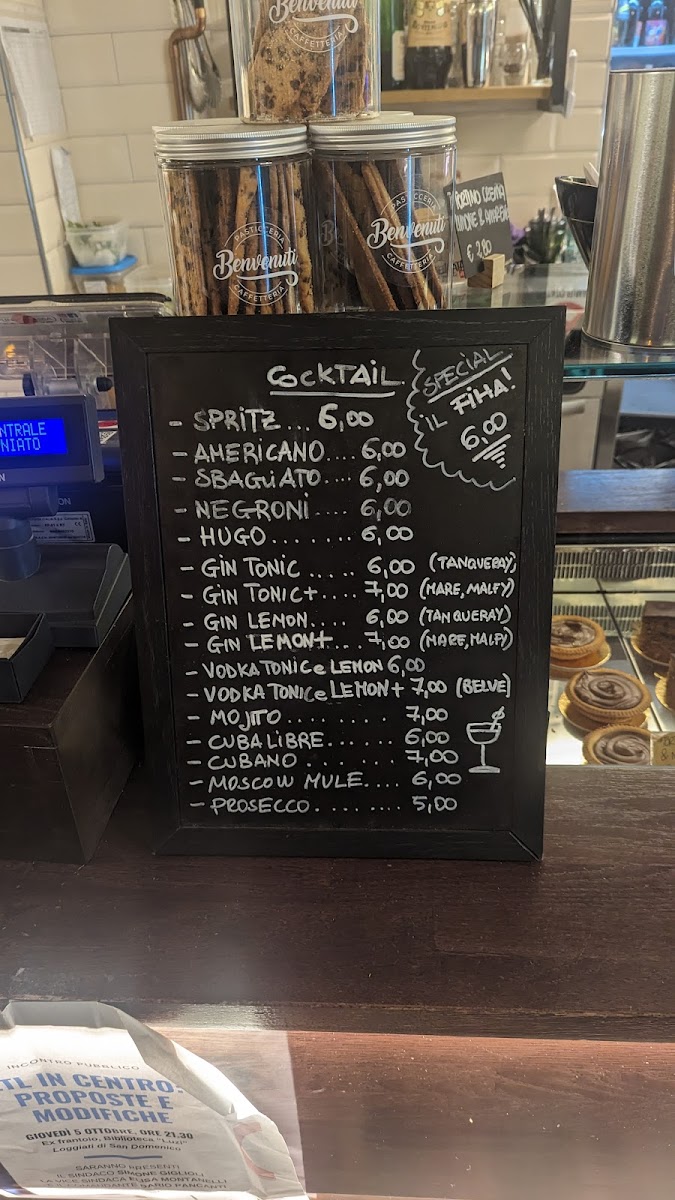 Benvenuti
CAFFETTERIA
PASTICCERIA
Benvenuti
CAFFETTERIA
PASTICCERIA
Benvenuti
CAFFETTERIA
€ 2,80
NTRALE
NIATO
COCKTAIL
SPECIAL
IL FIHA!
6,00
- SPRITZ... 6,00
- AMERICANO.... 6,00
- SBAGLIATO.... 6,00
- NEGRONI.... 6,00
- HUGO........ 6,00
- GIN TONIC ..... 6,00 (TANQUERAY)
- GIN TONIC+.... 7,00 (MARE, MALFY)
- GIN LEMON.... 6,00 (TANQUERAY)
- GIN LEMON+.... 7,00 (MARE, MALFY)
- VODKA TONIC e LEMON 6,00
- VODKA TONIC e LEMON+ 7,00 (BELVE)
- MOJITO ......... 7,00
- CUBA LIBRE....... 6,00
- CUBANO ......... 7,00
- MOSCOW MULE.... 6,00
- PROSECCO......... 5,00
INCONTRO PUBBLICO
ZTL IN CENTRO:
PROPOSTE E
MODIFICHE
GIOVEDÌ 5 OTTOBRE, ORE 21.30
Ex frantoio, Biblioteca "Luzi"
Loggiati di San Domenico
SARANNO PRESENTI
IL SINDACO SIMONE GIGLIOLI
LA VICE SINDACA ELISA MONTANELLI